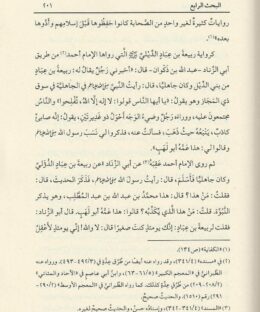 البحث الرابع ٢٠١
روايات كثيرة لغير واحد من الصحابة كانوا حفظوها قَبْلَ إسلامهم وأدَّوها
بعده».
كرواية ربيعة بن عِبَادٍ الدِّيْلِيِّ التي رواها الإمام أحمد(٢) من طريق
أبي الزِّنَاد ـ عبد الله بن ذَكْوان ـ قال: «أخبرني رجلٌ يقال له: ربيعة بن عِبَادٍ
الدِّيْلِي وكان جاهليًّا، قال: رأيتُ النبيَّ صلى الله عليه وسلم في الجاهلية في سوق
ذي المَجَاز وهو يقول: «يا أيها الناس قولوا: لا إله إلَّا الله، تُفْلِحوا» والناسُ
مجتمعون عليه، ووراءه رجلٌ وَضِيء الوجه أَحْوَلُ ذو غَدِيرَتَين، يقول: إنه صابئ
كاذبٌ، يَتْبَعُه حيثُ ذَهَب، فسألت عنه، فذكروا لي نَسَبَ رسول الله صلى الله عليه وسلم
وقالوا لي: هذا عَمُّه أبو لَهَبٍ».
ثم روى الإمام أحمد عَقِبَهُ(٣) عن أبي الزِّناد «عن ربيعة بن عِبَادٍ الدُّؤَلِيِّ
وكان جاهليًّا فَأَسْلَمَ، قال: رأيتُ رسول الله صلى الله عليه وسلم، فَذَكَرَ الحديث، قال:
فقلتُ: مَنْ هذا؟ قال: هذا محمد بن عبد الله بن عبد المُطَّلِب، وهو يذكر
النُّبُوَّة. قلتُ: مَنْ هذا الَّذي يُكَذِّبُه؟ قالوا: هذا عَمُّه أبو لَهَبٍ. قال أبو الزِّناد:
فقلت لربيعة بن عِبَادٍ: إنك يومئذٍ كنتَ صغيرًا! قال: لا والله! إني يومئذٍ لَأَعْقِلُ
(١) «الكفاية» (ص١٣٤).
(٢) في «المسند» (٣٤١/٤)، وقد رواه عنه أيضًا من طُرُقٍ عِدَّةٍ (٤٩٢/٣-٤٩٣)، ورواه عنه
الطَّبراني في «المعجم الكبير» (٦١/٥-٦٣)، وابنُ أبي عاصم في «الآحاد والمثاني»
(٢٠٨/٢-٢٠٩) من طُرُقٍ عِدَّةٍ كذلك. كما رواه الطَّبراني في «المعجم الأوسط» (٢٩٠/٢-
٢٩١) رقم (١٥١١)، والحديث صحيحٌ.
(٣) «المسند» (٣٤١/٤-٣٤٢)، وإسنادُه حسنٌ، والحديث صحيح لغيره.